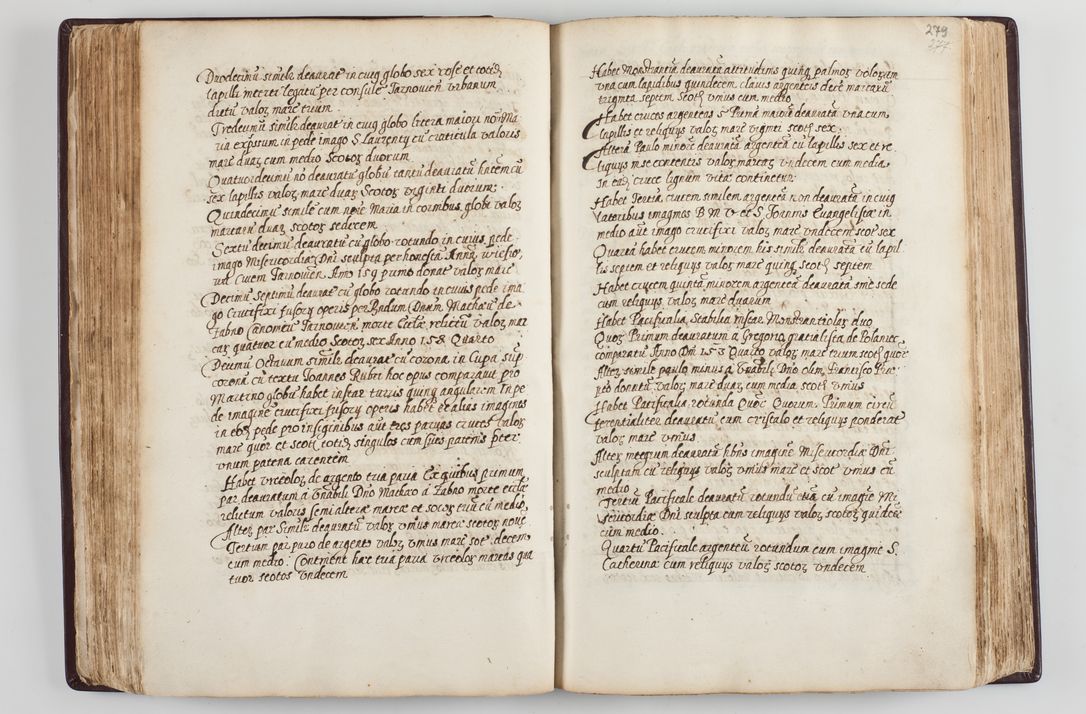 Duodecimũ simile deaurat in cuiq globo sex rose et totidẽ
lapilli metrei legatũ per consulẽ Tarnovien Urbanum
dictũ valoꝝ marc trium
Tredecimũ simile deaurat in cuiq globo litera maiori noĩe Ma
ria expssum in pede imago S Laurenty cũ craticula valoris
marc duaꝝ cum medio Scotoꝝ duorum
Quatuordecimũ nõ deauratũ globũ tantũ deauratũ hñtem cũ
sex lapillis valoꝝ marc duaꝝ Scotoꝝ viginti duorum
Quindecimũ simile cum noĩe Maria in cornibus globi valoꝝ
marcarũ duaꝝ scotoꝝ sedecem
Sextũ decimũ deauratũ cũ globo rotundo in cuius pede
imago Misericordiæ Dñi sculpta per honestã Annã
Civem Tarnovien Anno 159 primo donat valoꝝ marc
Decimũ Septimũ deaurat cũ globo rotundo in cuius pede ima
go Crucifixi fusory operis per Rndum Dnum Mathæũ de
Zabno Canonicũ Tarnovien morte Ecclæ relictũ valoꝝ mar
caꝝ quatuor cũ medio Scotoꝝ sex Anno 158 Quarto
Decimũ Octavum simile deaurat cũ corona in Cupa sup
corona cũ textu Ioannes Rubet hoc opus comparavit pro
Martino globũ habet instar turris quinq angularem In pe
de imaginẽ crucifixi fusory operis habet et alias imagines
in eodẽ pede pro insignibus aut tres parvas cruces valoꝝ
marc quor et scotoꝝ totidẽ singulos cum suis patenis preter
unum patena carentem
Habet Urceoloꝝ de argento tria paria Ex quibus primum
par deauratum á Vnãbili Dño Mathæo á Zabno morte ecclæ
relictum valoris semi alteræ marcæ et scotoꝝ triũ cũ medio
Alteꝝ par Simile deauratũ valoꝝ unius marcæ scotoꝝ nove
Tertium par puro de argento valoꝝ unius marc scot decem
cum medio. Continent hæc tria paria Urceoloꝝ marcas qua
tuor scotos undecem
279
277
Habet Monstrantiã deauratã altitudinis quinq palmoꝝ valorum
una cum lapidibus quindecem clavis argenteis dece marcarũ
triginta septem Scotoꝝ unius cum medio
Habet cruces argenteas 5 Primã maiorẽ deauratã una cum
lapillis et reliquys valoꝝ marc viginti scotoꝝ sex.
Alterã Paulo minorẽ deauratã argenteã cũ lapillis sex et re
liquys in se contentis valoꝝ marcaꝝ undecem cum media
In eadẽ cruce lignum vitæ continetur
Habet Tertiã crucem similem argenteã non deauratã in cuiq
lateribus imagines B M V et S Ioannis Evangelistæ in
medio aũt imago crucifixi valoꝝ marc undecem scot sex
Quartã habet crucem minorem his simile deauratã cũ lapil
lis septem et reliquys valoꝝ marc quinq scotoꝝ septem
Habet crucem quintã minorem argenteã deauratã sine sede
cum reliquys valoꝝ marc duarum
Habet Pacificalia Stabilia instar Monstrantiolaꝝ duo
Quoꝝ Primum deauratum à Gregorio gratialista de Polaniec
comparatũ Anno Dñi 153 Quarto valoꝝ marc trium scotoꝝ quor
Alteꝝ simile paulo minus á Vnãbile Dño olim Francisco
donatũ valoꝝ marc duaꝝ cum media scotoꝝ unius
Habet Pacificalia rotunda Quoꝝ Quorum. Primum circũ
ferentialiter deauratũ cum cristalo et reliquys ponderat
valoꝝ marc unius
Alteꝝ integrum deauratũ hñs imaginẽ Misericordiæ Dñi
sculptam cũ reliquys valoꝝ unius marc et scot unius cũ
medio
Tertiũ Pacificale deauratũ rotundũ etiã cũ imaginẽ Mi
sericordiæ Dñi sculpta cum reliquys valoꝝ scotoꝝ quĩdecĩ
cum medio.
Quartũ Pacificale argenteũ rotundum cum imagine S.
Catherinæ cum reliquys valoꝝ scotoꝝ undecem